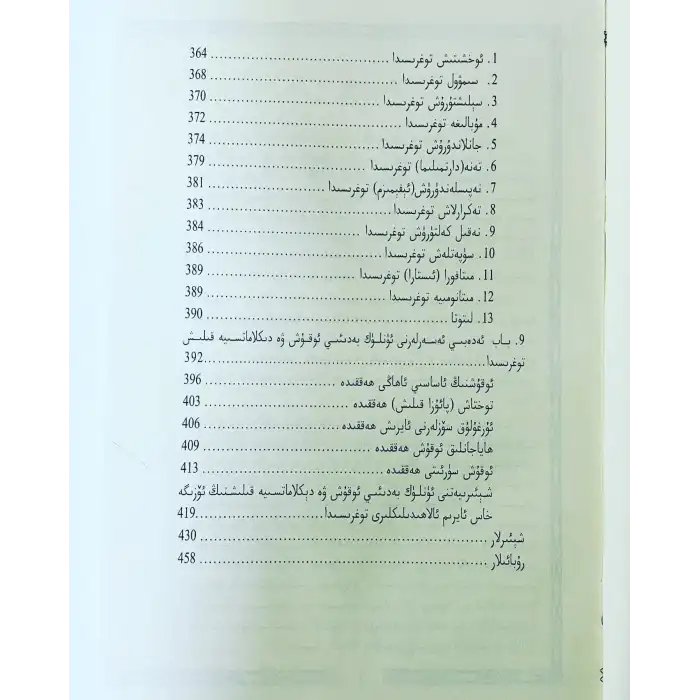 1. ئوخشىتىش توغرىسىدا ........................................ 364
2. سىمۋول توغرىسىدا ........................................ 368
3. سېلىشتۇرۇش توغرىسىدا ........................................ 370
4. مۇبالىغە توغرىسىدا ........................................ 372
5. جانلاندۇرۇش توغرىسىدا ........................................ 374
6. تەنە(دارتمىلىما) توغرىسىدا ................................ 379
7. نەپىسلەندۈرۈش(ئېفېمىزم) توغرىسىدا ........................ 381
8. تەكرارلاش توغرىسىدا ........................................ 383
9. نەقىل كەلتۈرۈش توغرىسىدا ................................ 384
10. سۈپەتلەش توغرىسىدا ........................................ 386
11. مىتافورا (ئىستارا) توغرىسىدا ................................ 389
12. مىتانومىيە توغرىسىدا ........................................ 389
13. لىتوتا ........................................................ 390
9. باب ئەدەبىي ئەسەرلەرنى ئۈنلۈك بەدىئىي ئوقۇش ۋە دىكلاماتسىيە قىلىش
توغرىسىدا ........................................................392
ئوقۇشنىڭ ئاساسىي ئاھاڭى ھەققىدە ........................ 396
توختاش (پائۇزا قىلىش) ھەققىدە ........................ 403
ئۇرغۇلۇق سۆزلەرنى ئايرىش ھەققىدە ........................ 406
ھاياجانلىق ئوقۇش ھەققىدە ................................ 409
ئوقۇش سۈرئىتى ھەققىدە ................................ 413
شېئىرىيەتنى ئۈنلۈك بەدىئىي ئوقۇش ۋە دېكلاماتسىيە قىلىشنىڭ ئۆزىگە
خاس ئايرىم ئالاھىدىلىكلىرى توغرىسىدا ........................419
شېئىرلار ........................................................ 430
رۇبائىيلار ........................................................ 458